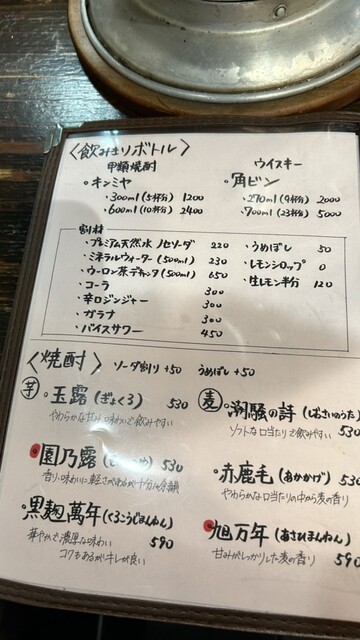 〈飲みきりボトル〉
甲類焼酎
・キンミヤ
・300ml(5杯分) 1200
・600ml(10杯分) 2400
ウイスキー
・角ビン
・270ml(9杯分) 2000
・700ml(23杯分) 5000
割材
・プレミアム天然水ノセソーダ 220
・ミネラルウォーター(500ml) 230
・ウーロン茶デキャンタ(500ml) 650
・コーラ 300
・辛口ジンジャー 300
・ガラナ 300
・バイスサワー 450
・うめぼし 50
・レモンシロップ 0
・生レモン半分 120
〈焼酎〉 ソーダ割り+50 うめぼし+50
芋
・玉露(ぎょくろ) 530
やわらかな甘み味わいで飲みやすい
・園乃露 530
香り・味わいに軽さが
・黒麹萬年(くろこうじまんねん) 590
華やかで濃厚な味わい
コクもあるがキレが良い
麦
・潮騒の詩(しおさいのうた) 530
ソフトな口当たりで飲みやすい
・赤鹿毛(あかかげ) 530
やわらかな口当たりの中から麦の香り
・旭万年(あさひまんねん) 590
甘みがしっかりした麦の香り